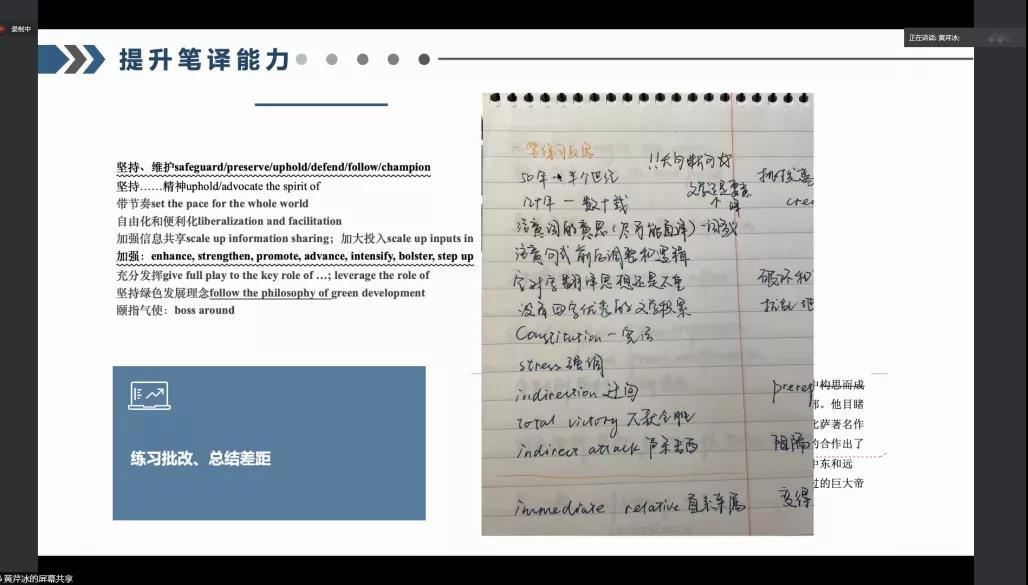 录制中
正在讲话: 黄芹冰;
提升笔译能力
坚持、维护safeguard/preserve/uphold/defend/follow/champion
坚持……精神uphold/advocate the spirit of
带节奏set the pace for the whole world
自由化和便利化liberalization and facilitation
加强信息共享scale up information sharing；加大投入scale up inputs in
加强：enhance, strengthen, promote, advance, intensify, bolster, step up
充分发挥give full play to the key role of …; leverage the role of
坚持绿色发展理念follow the philosophy of green development
颐指气使：boss around
练习批改、总结差距
50年→半个世纪
几十年 — 数十载
注意词的意思
注意句式 前后调整和逻辑
Constitution — 宪法
stress 强调
indirection 迂回
total victory 大获全胜
indirect attack 声东击西
immediate relative 直系亲属
破坏和
扰乱
阻隔
变得
中构思而成
部。他目睹
比萨著名作
的合作出了
中东和远
过的巨大帝
黄芹冰的屏幕共享